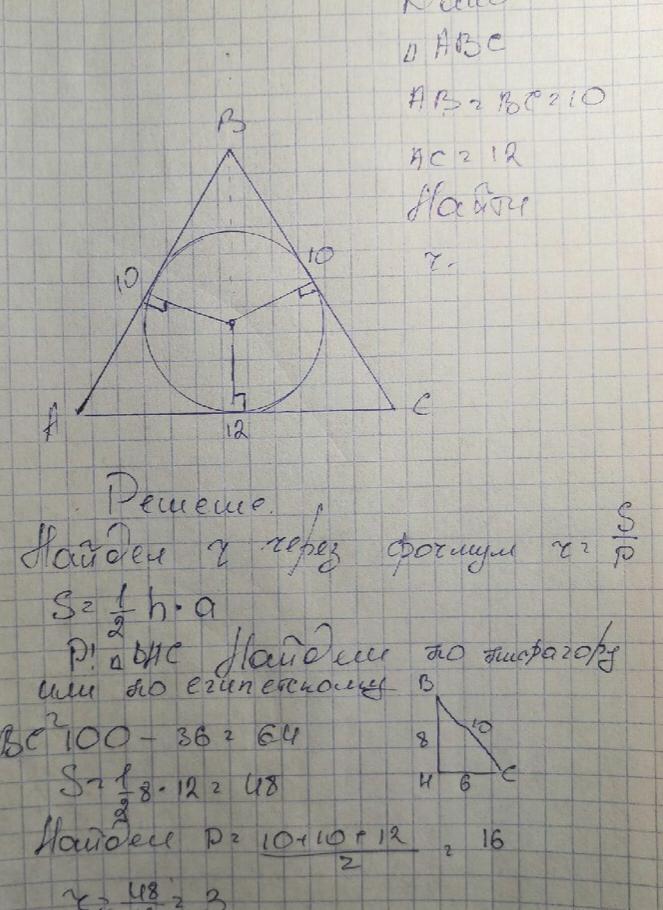 Дано
△ ABC
AB = BC = 10
AC = 12
Найти
r.
B
10
10
A
12
C
Решение.
Найдем r через формул r = S/p
S = 1/2 h · a
P! △ BHC Найдем по пифагору
или по египетскому
B
8
10
H
6
C
BC² 100 - 36 = 64
S = 1/2 8 · 12 = 48
Найдем p = (10 + 10 + 12)/2 = 16
r = 48/ = 3